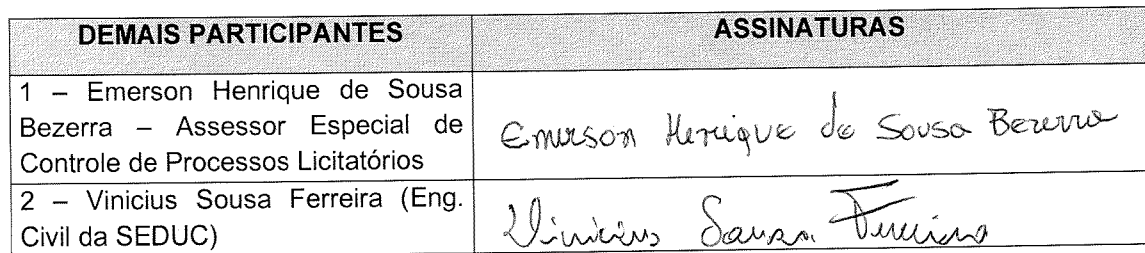 DEMAIS PARTICIPANTES
ASSINATURAS
1 – Emerson Henrique de Sousa
Bezerra – Assessor Especial de
Controle de Processos Licitatórios
Emerson Henrique de Sousa Bezerra
2 – Vinicius Sousa Ferreira (Eng.
Civil da SEDUC)
Vinicius Sousa Ferreira